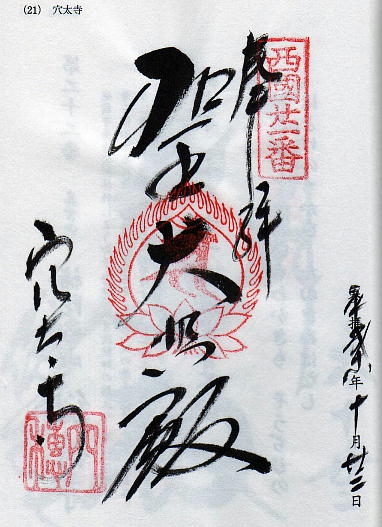 (21) 穴太寺
西國廿一番
奉拝
聖大悲殿
穴太寺
年十月廿二日